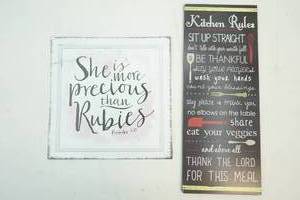 She is
more
precious
than
Rubies
Proverbs 3:15
Kitchen Rules
SIT UP STRAIGHT
don't talk with your mouth full
BE THANKFUL
say your prayers
wash your hands
count your blessings
say please & thank you
no elbows on the table
share
eat your veggies
and above all
THANK THE LORD
FOR THIS MEAL